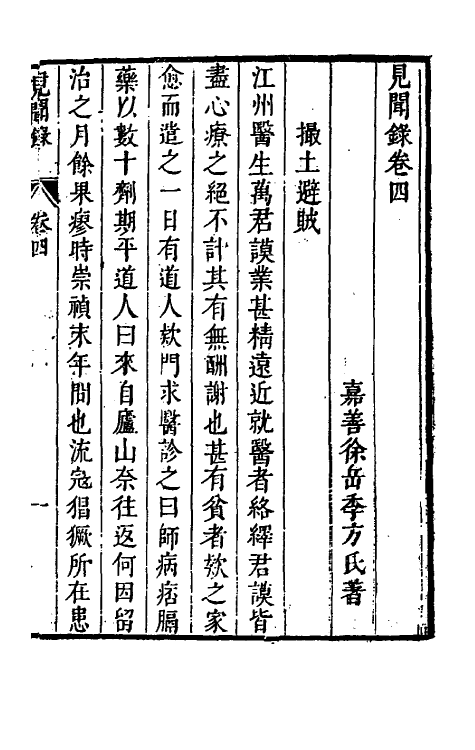 見聞錄卷四
嘉善徐岳季方氏著
撮土避賊
江州醫生萬君謨業甚精遠近就醫者絡繹君謨皆
盡心療之絕不計其有無酬謝也甚有貧者欸之家
愈而遣之一日有道人欸門求醫診之曰師病痞膈
藥以數十劑期平道人曰來自廬山奈往返何因留
治之月餘果瘳時崇禎末年間也流寇猖獗所在患
見聞錄
卷四
一